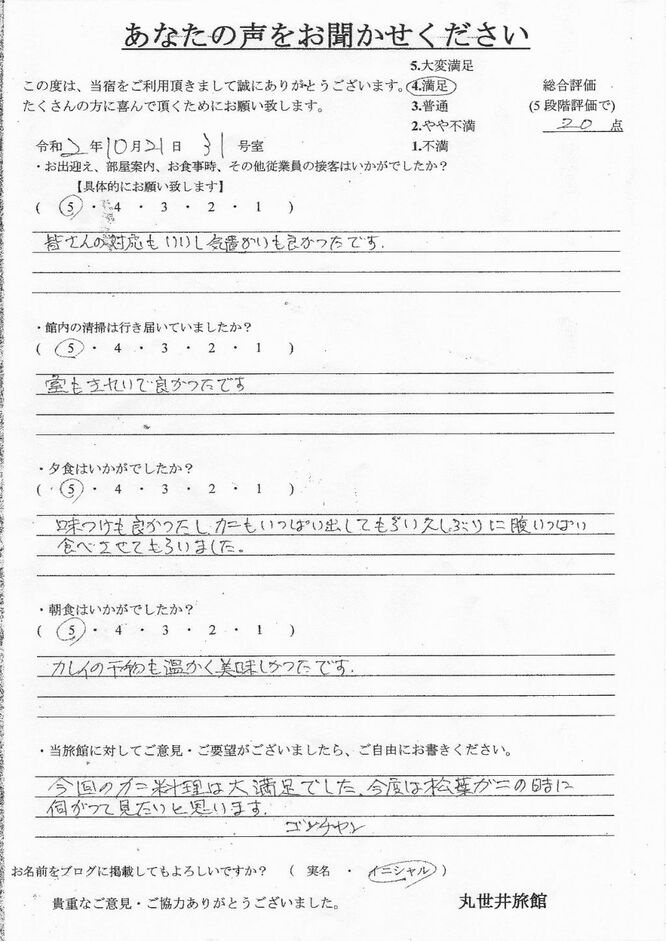 あなたの声をお聞かせください
5.大変満足
この度は、当宿をご利用頂きまして誠にありがとうございます。 4.満足 総合評価
たくさんの方に喜んで頂くためにお願い致します。 3.普通 (5段階評価で)
2.やや不満 20 点
令和2年10月21日 31号室 1.不満
・お出迎え、部屋案内、お食事時、その他従業員の接客はいかがでしたか？
【具体的にお願い致します】
( 5 ・ 4 ・ 3 ・ 2 ・ 1 )
皆さんの対応もいいし気遣かいも良かったです.
・館内の清掃は行き届いていましたか？
( 5 ・ 4 ・ 3 ・ 2 ・ 1 )
室もきれいで良かったです
・夕食はいかがでしたか？
( 5 ・ 4 ・ 3 ・ 2 ・ 1 )
味つけも良かったし カニもいっぱい出してもらい久しぶりに腹いっぱい
食べさせてもらいました。
・朝食はいかがでしたか？
( 5 ・ 4 ・ 3 ・ 2 ・ 1 )
カレイの干物も温かく美味しかったです.
・当旅館に対してご意見・ご要望がございましたら、ご自由にお書きください。
今回のカニ料理は大満足でした、今度は松葉がニの時に
伺がって見たいと思います.
ゴンチャン
お名前をブログに掲載してもよろしいですか？ ( 実名 ・ イニシャル )
貴重なご意見・ご協力ありがとうございました。 丸世井旅館